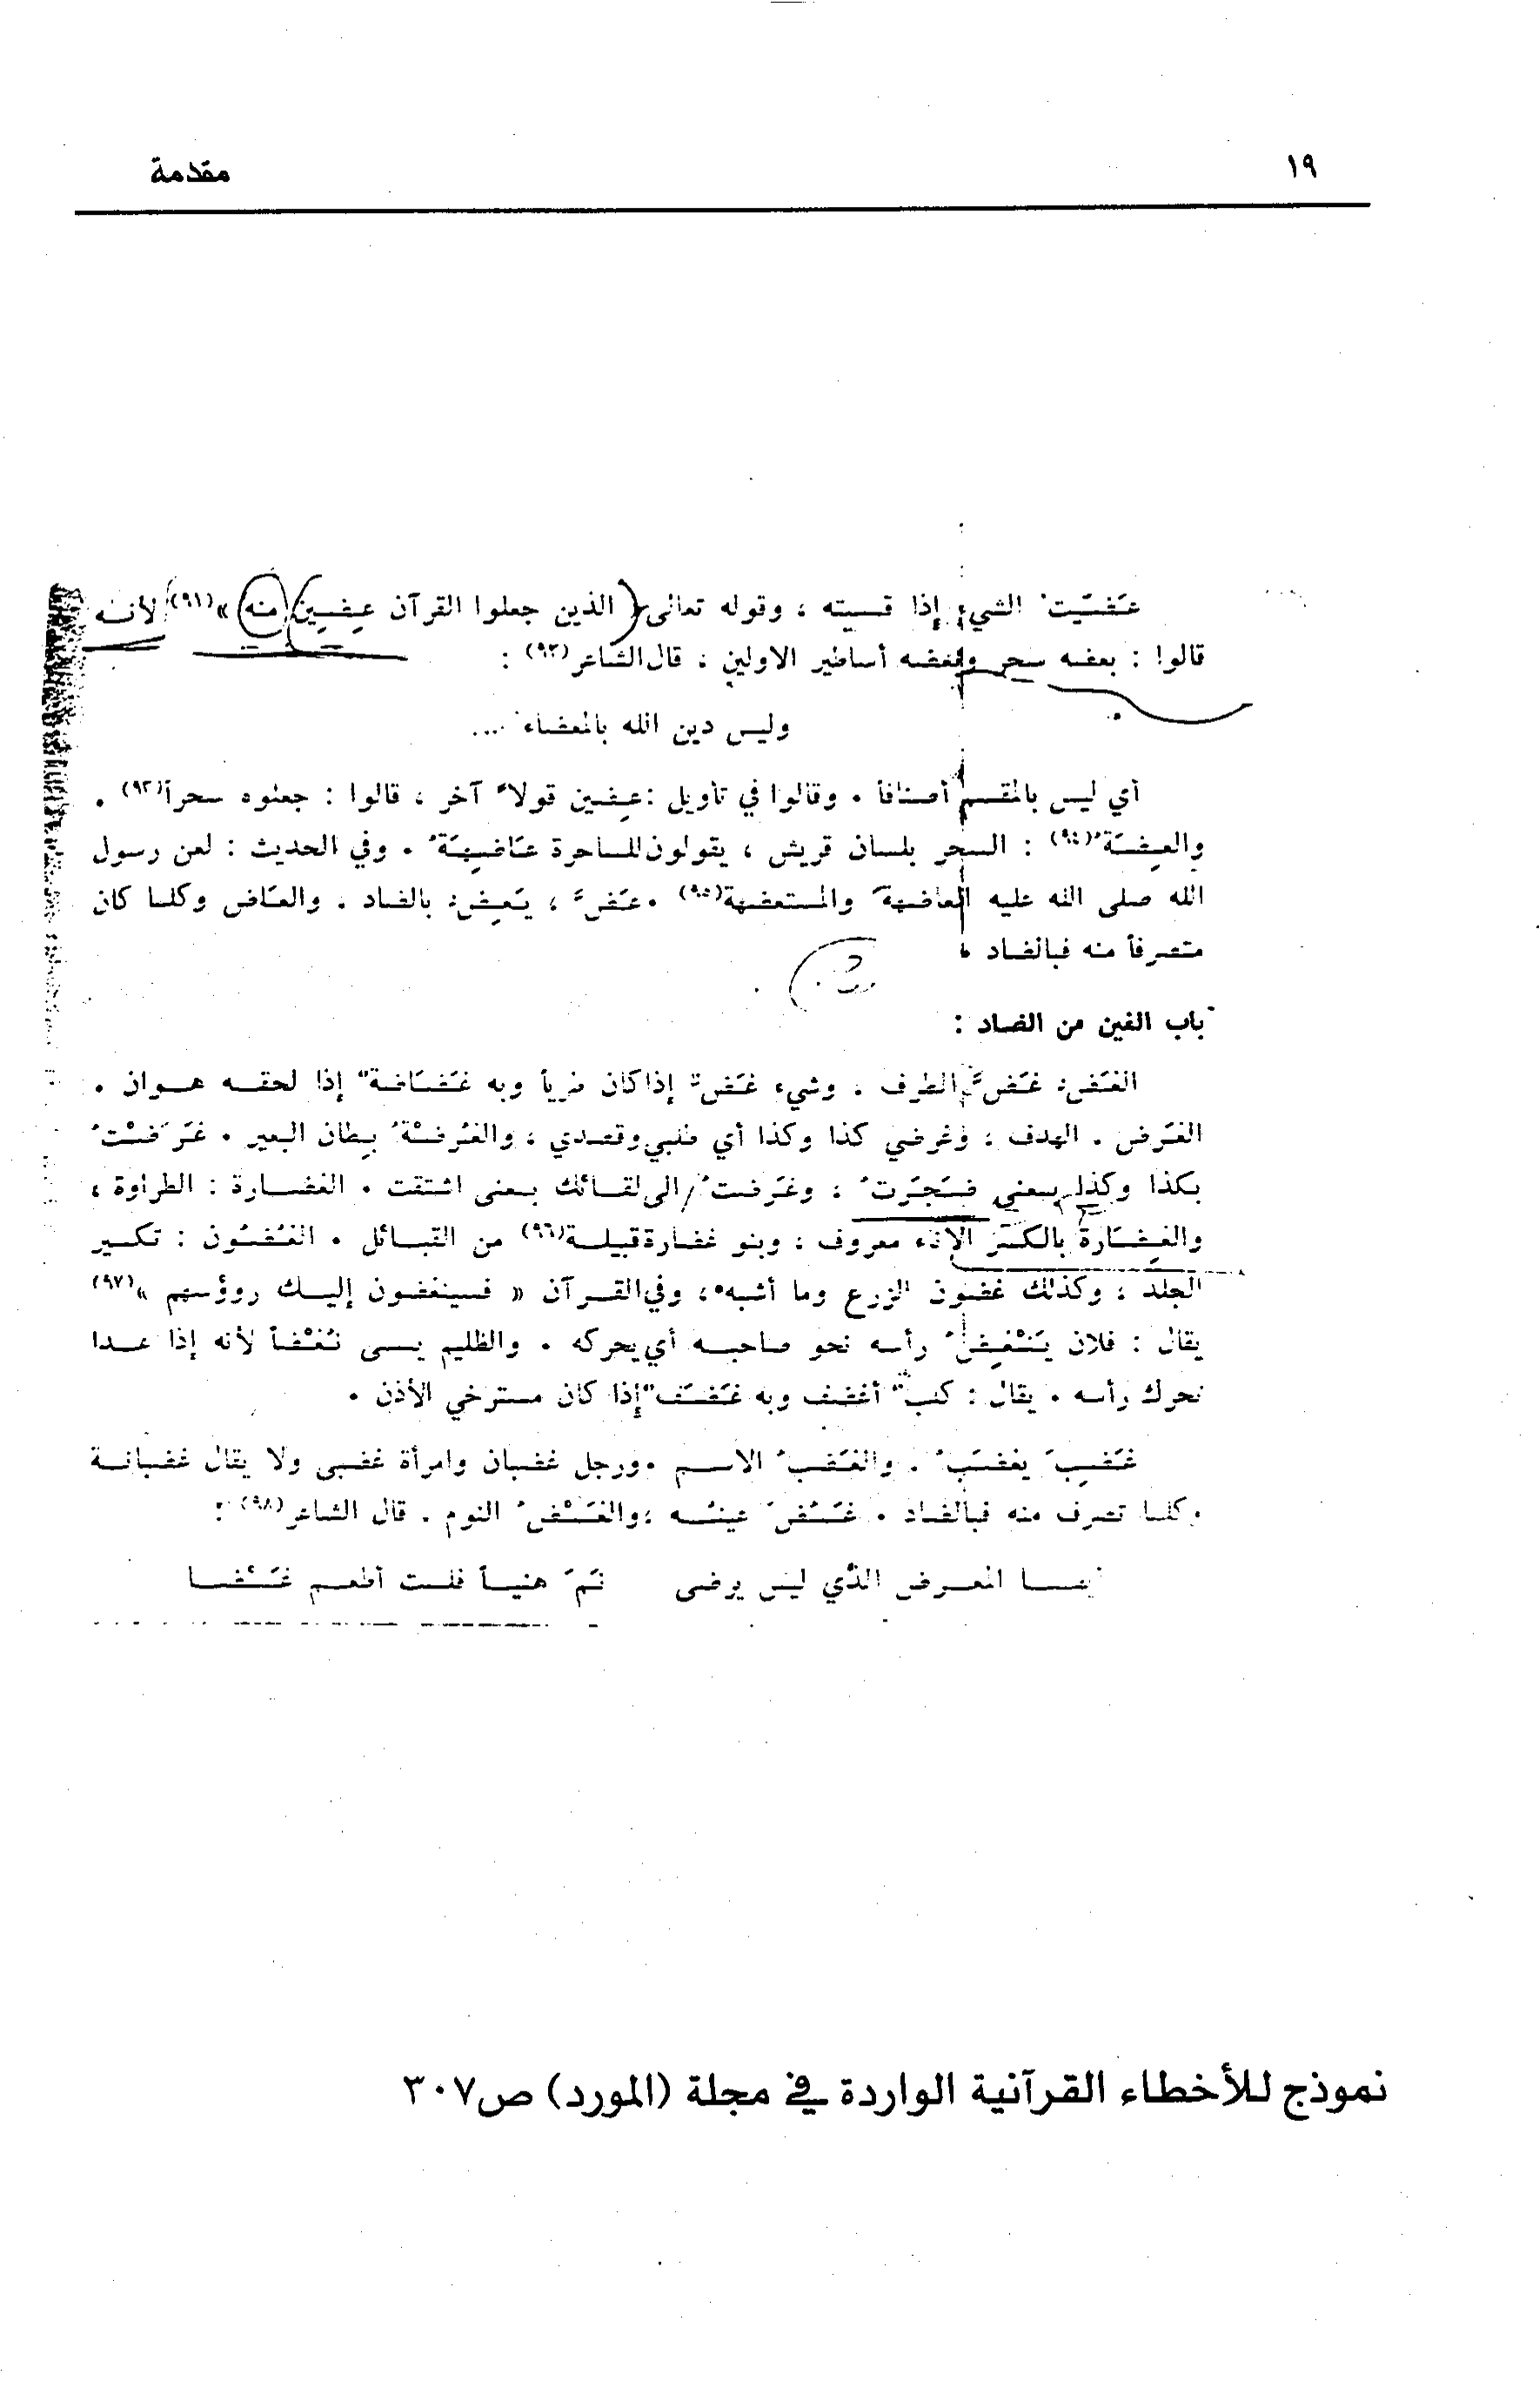 ١٩
مقدمة
عَضَّيت الشيء إذا قسمته ، وقوله تعالى « الذين جعلوا القرآن عِضِين منه »(٩١) لأنه
قالوا : بعضه سحر وبعضه أساطير الاولين ، قال الشاعر(٩٢) :
وليس دين الله بالمعضاء ...
أي ليس بالمقسم أصنافاً . وقالوا في تأويل : عِضين قولاً آخر ، قالوا : جعلوه سحراً(٩٣) .
والعِضَة(٩٤) : السحر بلسان قريش ، يقولون للساحرة عَاضِهَة . وفي الحديث : لعن رسول
الله صلى الله عليه العاضهة والمستعضهة(٩٥) . عَضَّ ، يَعَضّ : بالضاد . والعَاض وكلما كان
متصرفاً منه فبالضاد .
باب الغين من الضاد :
الغَضّ : غَضّ الطرف . وشيء غَضّ إذا كان طرياً وبه غَضَاضة إذا لحقه هوان .
الغَرض . الهدف ، وغرضي كذا وكذا أي طلبي وقصدي ، والغُرضَة بطان البعير . غَرَضْتُ
بكذا وكذا بمعنى ضَجَرت ، وغَرَضت / الى لقائك بمعنى اشتقت . الغضارة : الطراوة ،
والغِضَارة بالكسر الإناء معروف ، وبنو غضارة قبيلة(٩٦) من القبائل . الغُضُون : تكسير
الجلد ، وكذلك غضون الزرع وما أشبهه ، وفي القرآن « فسينغضون إليك رؤوسهم »(٩٧)
يقال : فلان يَنْغِضُ رأسه نحو صاحبه أي يحركه . والظليم يسمى نُغْضاً لأنه إذا عدا
تحرك رأسه . يقال : كلب أغضف وبه غَضَف إذا كان مسترخي الأذن .
غَضِبَ يغضَبُ . والغَضَبُ الاسم . ورجل غضبان وامرأة غضبى ولا يقال غضبانة
وكلما تصرف منه فبالضاد . غَمَّضَ عينَه ، والغَمْضُ النوم . قال الشاعر(٩٨) :
أيها المعرض الذي ليس يرضى    نَمْ هنيئاً فلست أطعم غَمْضا
نموذج للأخطاء القرآنية الواردة في مجلة (المورد) ص٣٠٧